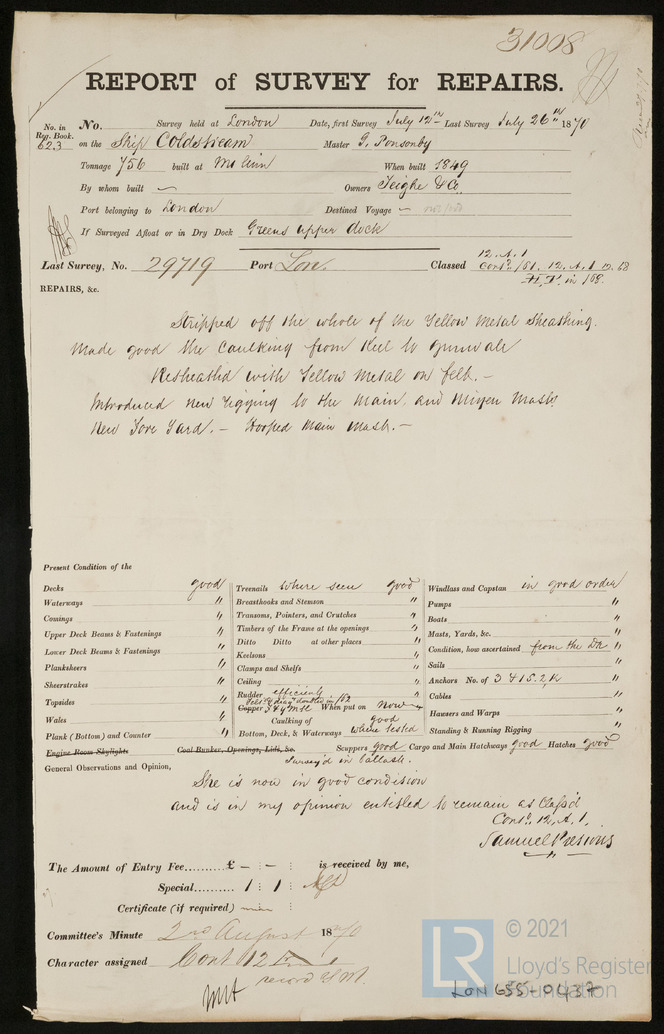 31008
REPORT of SURVEY for REPAIRS.
No. in Reg. Book. 623
No. Survey held at London Date, first Survey July 12th Last Survey July 26th 1870
on the Ship Coldstream Master G. Ponsonby
Tonnage 756 built at When built 1849
By whom built — Owners Teighe & Co
Port belonging to London Destined Voyage —
If Surveyed Afloat or in Dry Dock Greens upper dock
12. A. 1
Last Survey, No. 29719 Port Lon. Classed Contd. /61. 12. A. 1 68
in /68
REPAIRS, &c.
Stripped off the whole of the Yellow Metal Sheathing.
Made good the Caulking from Keel to gunwale
Resheathed with Yellow Metal on felt. —
Introduced new rigging to the Main, and Mizen Masts
New Fore Yard. — Hooped Main Mast. —
Present Condition of the
Decks good
Waterways "
Comings "
Upper Deck Beams & Fastenings "
Lower Deck Beams & Fastenings "
Planksheers "
Sheerstrakes "
Topsides "
Wales "
Plank (Bottom) and Counter "
Engine Room Skylights
Treenails where seen good
Breasthooks and Stemson "
Transoms, Pointers, and Crutches "
Timbers of the Frame at the openings "
Ditto Ditto at other places "
Keelsons "
Clamps and Shelfs "
Ceiling "
Rudder efficient "
doubled in /62
Copper When put on now
Caulking of good
Bottom, Deck, & Waterways where tested
Coal Bunker, Openings, Lids, &c.
Windlass and Capstan in good order
Pumps "
Boats "
Masts, Yards, &c. "
Condition, how ascertained from the Dk "
Sails "
Anchors No. of 3 & 1 S. 2 K "
Cables "
Hawsers and Warps "
Standing & Running Rigging "
Scuppers good Cargo and Main Hatchways good Hatches good
Survey'd in ballast.
General Observations and Opinion,
She is now in good condition
and is in my opinion entitled to remain as Class'd
Contd. 12. A. 1.
Samuel Pretious
The Amount of Entry Fee..........£ — : — : is received by me,
Special.......... 1 : 1 :
Certificate (if required) :
Committee's Minute 2nd August 1870
Character assigned Cont 12
record YM.
© 2021
LR
Lloyd's Register
Foundation
LON 655-0437